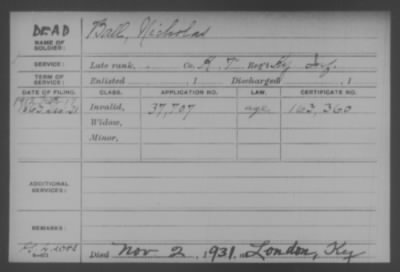 DEAD
NAME OF SOLDIER:
Ball, Nicholas
SERVICE:
Late rank, Co. K, 7 Reg't Ky Inf.
TERM OF SERVICE:
Enlisted , 1 Discharged , 1
DATE OF FILING. CLASS. APPLICATION NO. LAW. CERTIFICATE NO.
1863
Invalid, 37,707 age. 163,360
Widow,
Minor,
ADDITIONAL SERVICES:
REMARKS:
Died Nov 2, 1931, at London, Ky